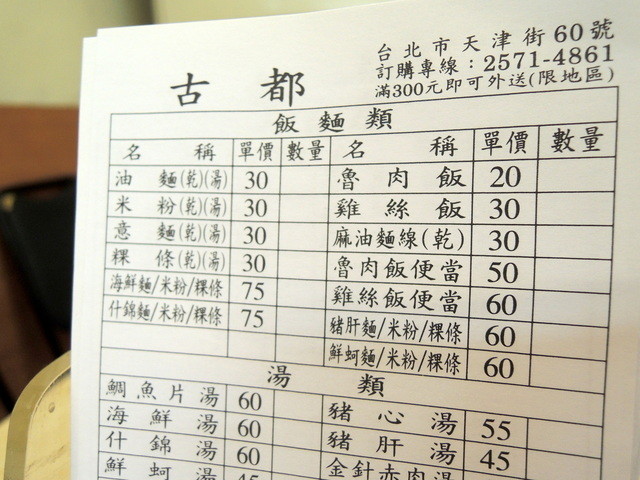 台北市天津街60號
訂購專線：2571-4861
滿300元即可外送(限地區)
古都
飯麵類
名稱 單價 數量 名稱 單價 數量
油麵(乾)(湯) 30 魯肉飯 20
米粉(乾)(湯) 30 雞絲飯 30
意麵(乾)(湯) 30 麻油麵線(乾) 30
粿條(乾)(湯) 30 魯肉飯便當 50
海鮮麵/米粉/粿條 75 雞絲飯便當 60
什錦麵/米粉/粿條 75 豬肝麵/米粉/粿條 60
鮮蚵麵/米粉/粿條 60
湯類
鯛魚片湯 60 豬心湯 55
海鮮湯 60 豬肝湯 45
什錦湯 60 金針赤肉湯
鮮蚵湯 45